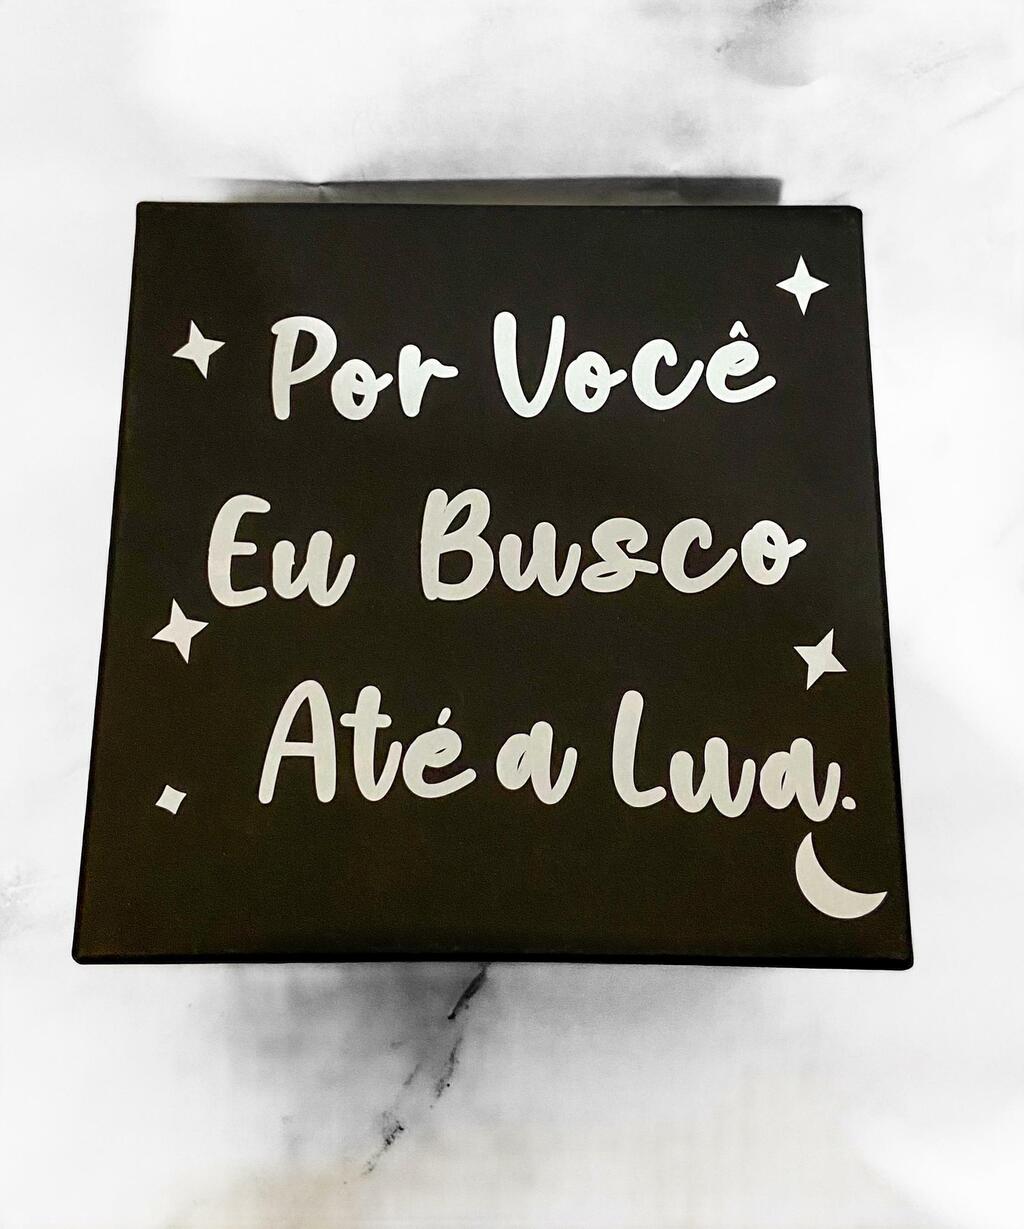 Por Você
Eu Busco
Até a Lua.